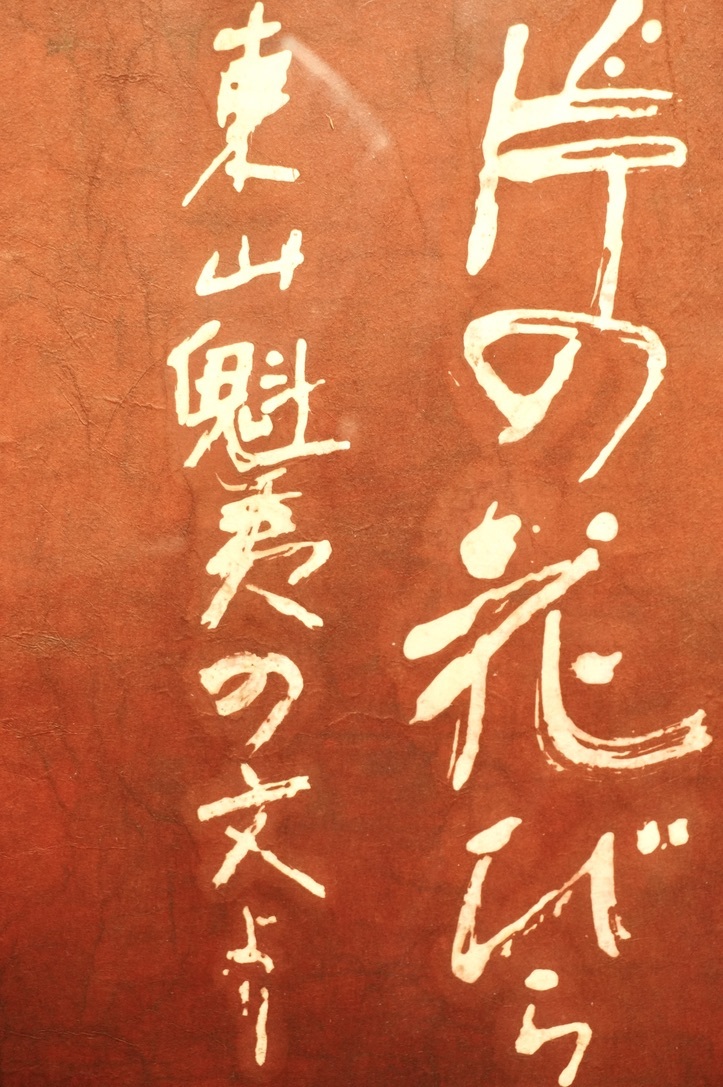 片の花びら
東山魁夷の文より